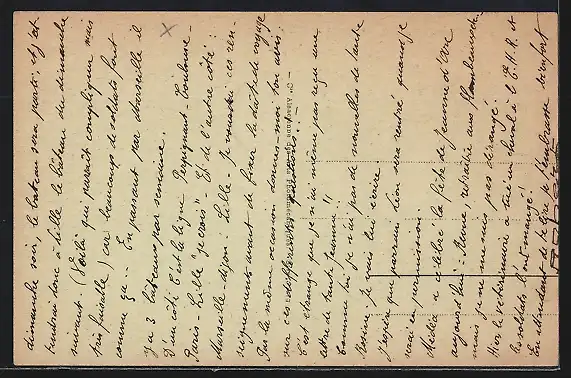 dimanche soir, le bateau sera parti, et il
faudrait donc à Lille le bateau du dimanche
suivant. (Voilà qui paraît compliqué mais
très faisable) car beaucoup de soldats font
comme ça. En passant par Marseille il
y a 3 bateaux par semaine.
D'un côté c'est la ligne Perpignan-Toulouse-
Paris-Lille "je crois" Et de l'autre côté :
Marseille-Dijon-Lille. Je voudrais ces ren-
seignements avant de fixer la date de voyage
Par la même occasion donne-moi ton avis
sur ces différentes questions. -
C'est étrange que je n'ai même pas reçu une
lettre de tante Jeanne!!
Comme toi je n'ai pas de nouvelles de tante
je vais lui écrire
J'espère que parrain Léon sera rentré quand je
serai en permission
Medea a célébré la fête de Jeanne d'Arc
aujourd'hui. Messe, retraite aux flambeaux
mais je ne me suis pas dérangé.
Hier le vétérinaire a tué un cheval à l'E.H.R. et
les soldats l'ont mangé!
En attendant de te lire je t'embrasse bien fort